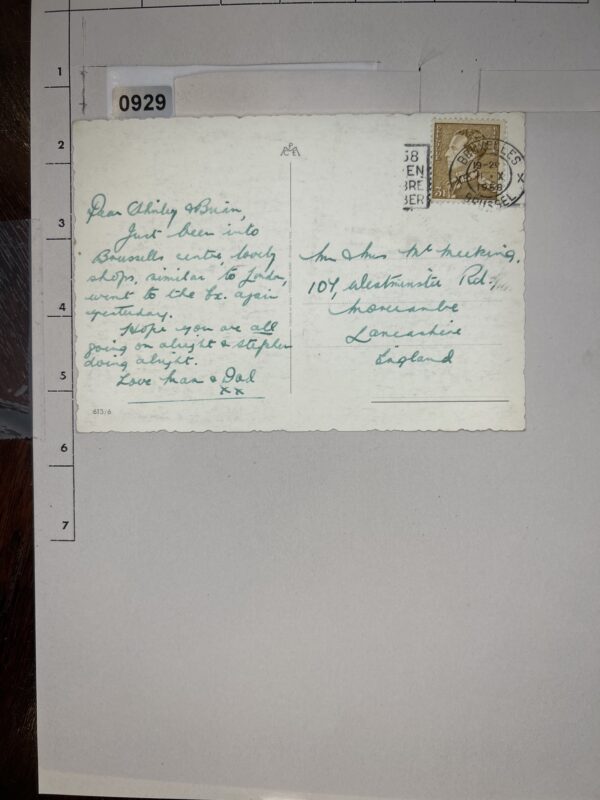 1
2
3
4
5
6
7
0929
58
EN
BRE
BER
BRUXELLES
19-20
X X
1958
BRUSSEL
3F
Dear Shirley & Brian,
Just been into
Brussells centre, lovely
shops, similar to London,
went to the Ex. again
yesterday.
Hope you are all
going on alright & stephen
doing alright.
Love Mam & Dad
x x
613/6
Mr & Mrs Mc Meeking.
107, Westminster Rd.
Morecambe
Lancashire
England